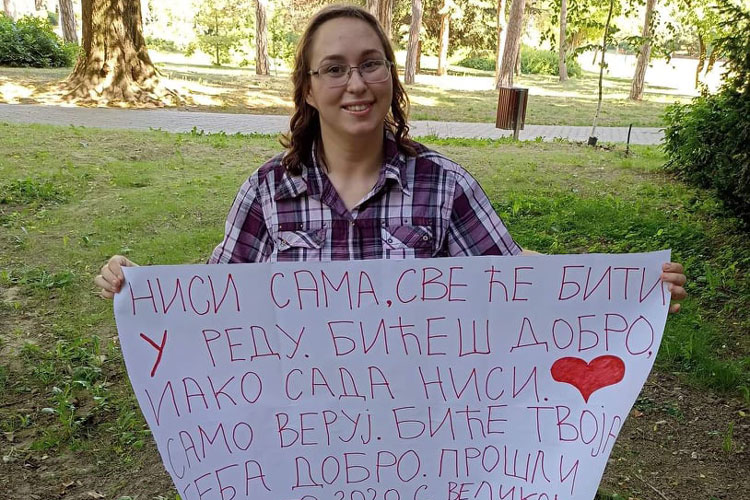 НИСИ САМА, СВЕ ЋЕ БИТИ
У РЕДУ. БИЋЕШ ДОБРО,
ИАКО САДА НИСИ.
САМО ВЕРУЈ. БИЋЕ ТВОЈА
ДОБРО. ПРОШЛИ
2020 С ВЕЛИКОМ